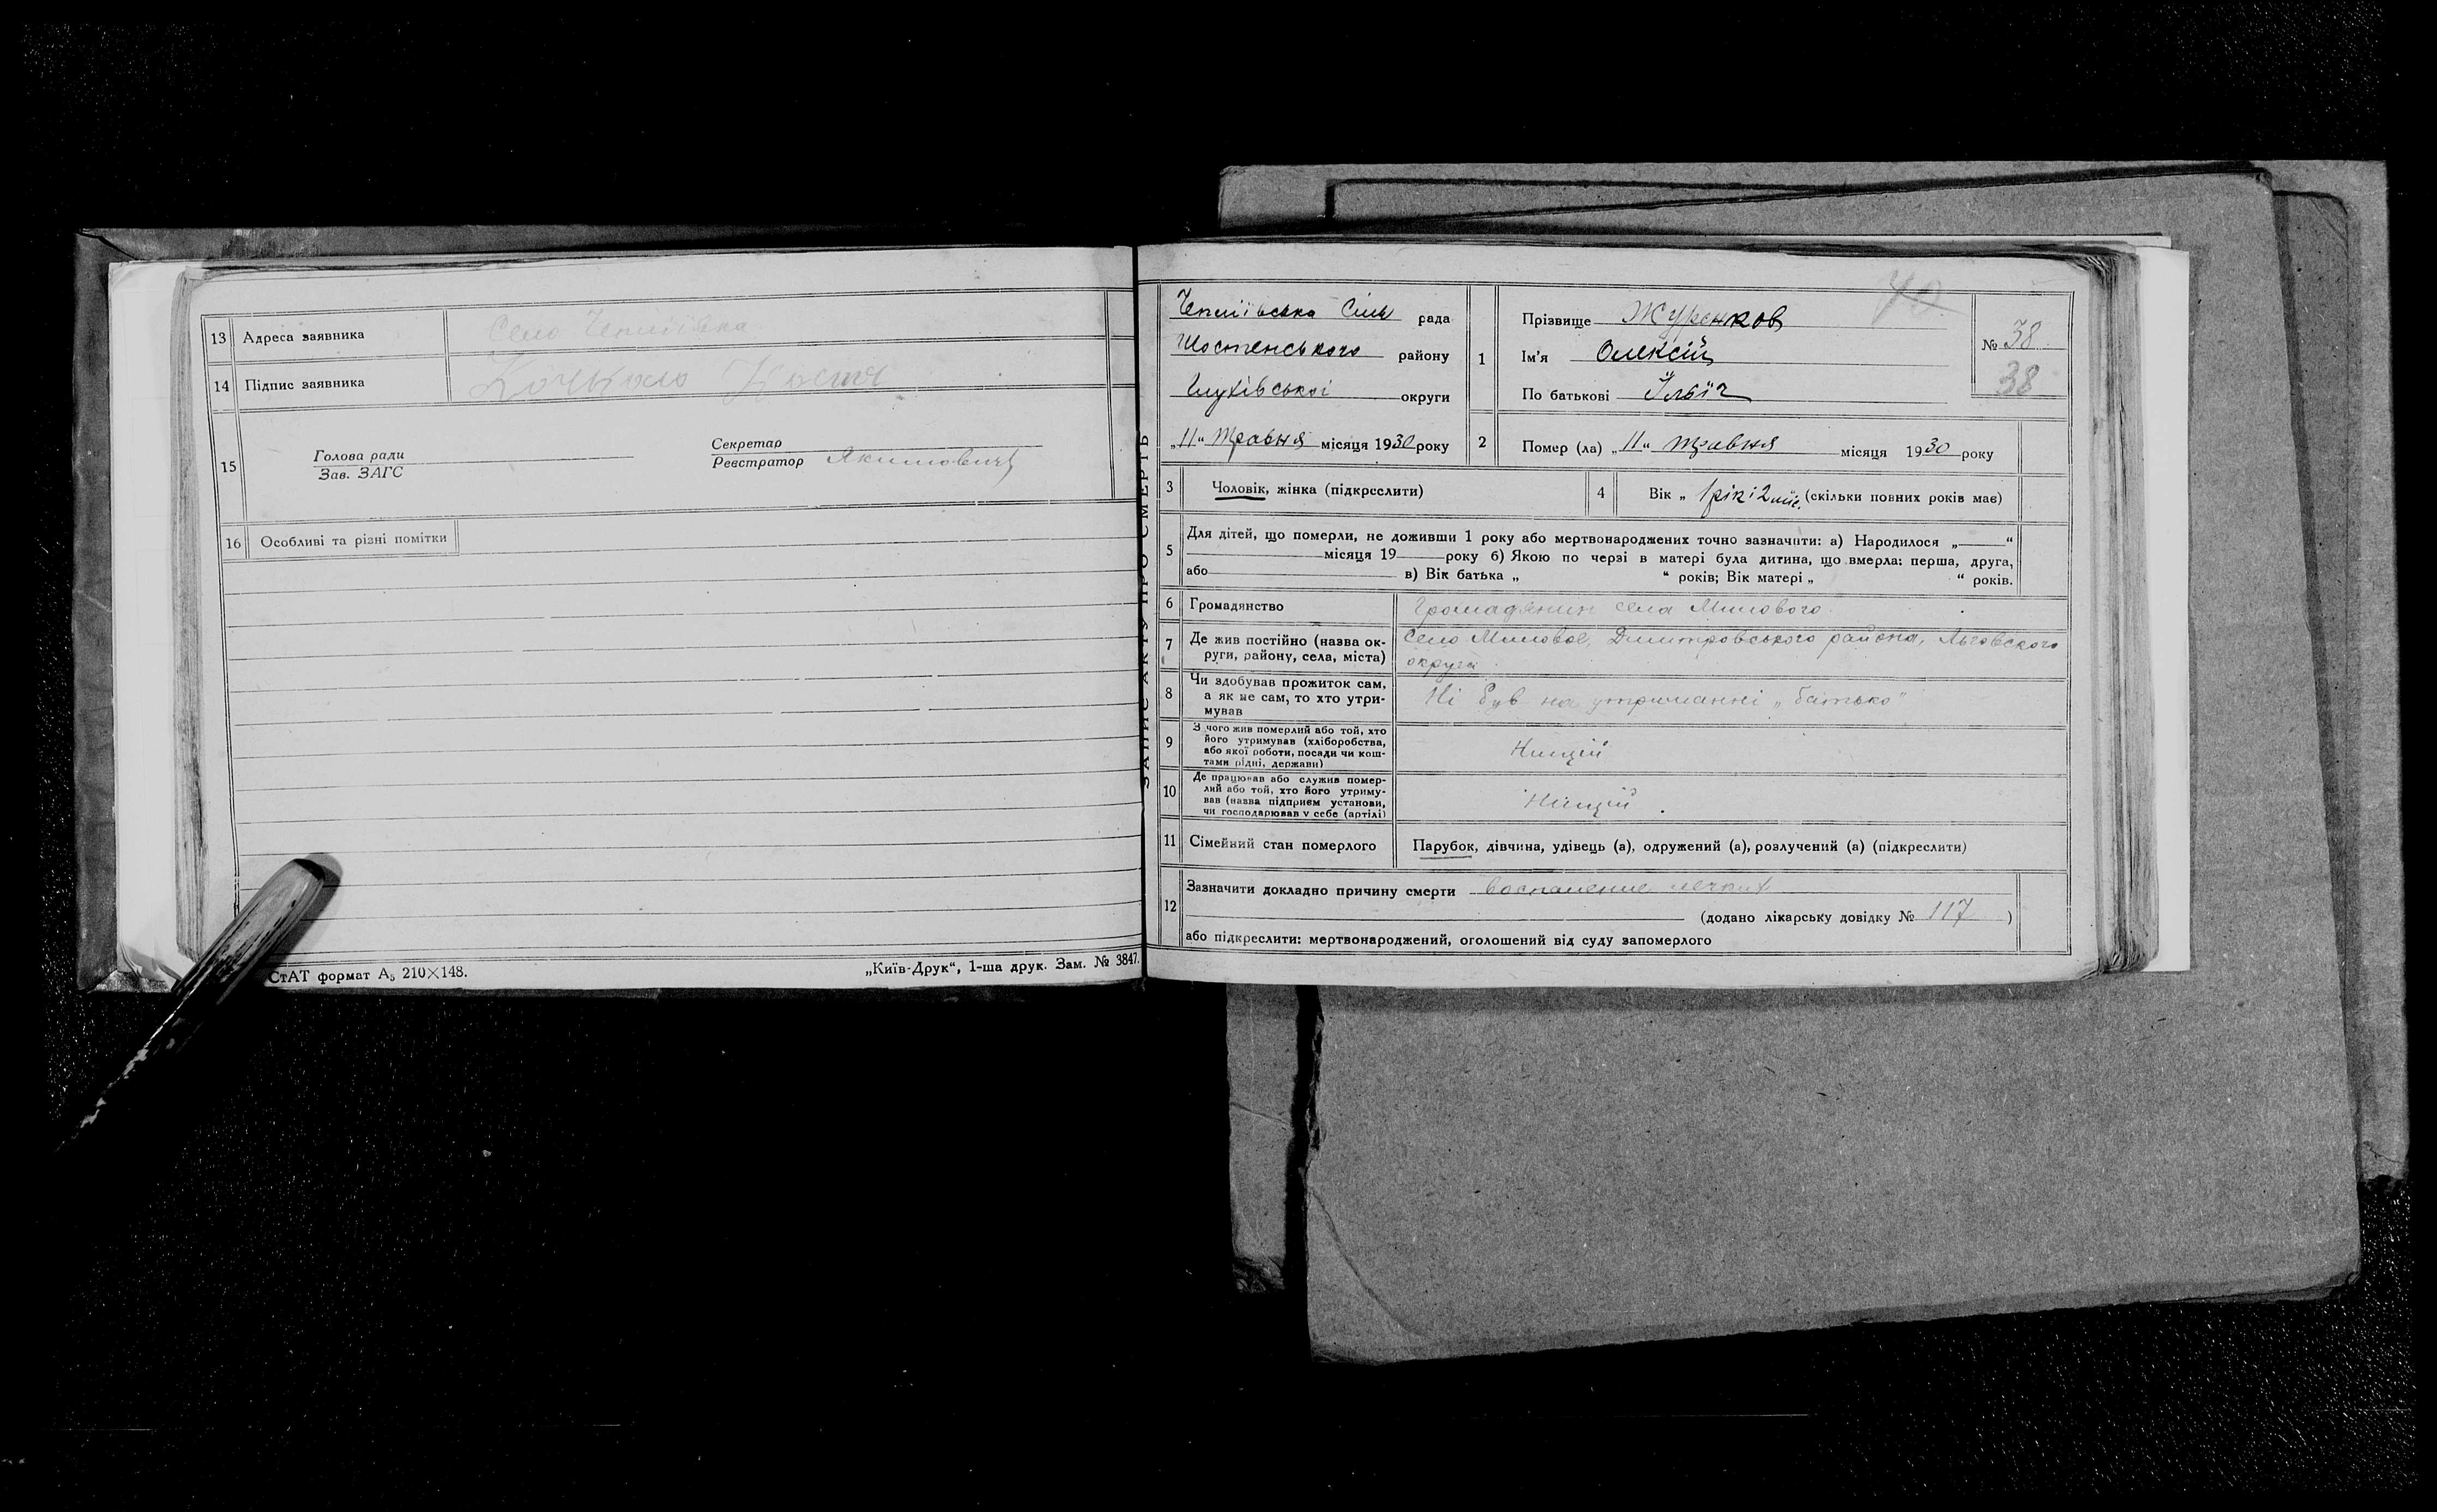 13 Адреса заявника Село Чепліївка
14 Підпис заявника Костя
15 Голова ради
Зав. ЗАГС
Секретар
Реєстратор Якимович
16 Особливі та різні помітки
СтАТ формат А₅ 210×148.
„Київ-Друк“, 1-ша друк. Зам. № 3847.
ЗАПИС АКТУ ПРО СМЕРТЬ
Чепліївська Сіль рада
Шостенського району
Глухівської округи
„11“ травня місяця 1930 року
1 Прізвище Журенков
Ім'я Олексій
По батькові Ільїч
40
№ 38
38
2 Помер (ла) „11“ травня місяця 1930 року
3 Чоловік, жінка (підкреслити)
4 Вік „ 1 рік і 2 міс. (скільки повних років має)
5 Для дітей, що померли, не доживши 1 року або мертвонароджених точно зазначити: а) Народилося „ “
місяця 19 року б) Якою по черзі в матері була дитина, що вмерла: перша, друга,
або в) Вік батька „ “ років; Вік матері „ “ років.
6 Громадянство Громадянин села Милового.
7 Де жив постійно (назва ок-
руги, району, села, міста)
Село Миловое, Дмитровського района, Льговского
округи.
8 Чи здобував прожиток сам,
а як не сам, то хто утри-
мував
Ні був на утриманні „батько“
9 З чого жив померлий або той, хто
його утримував (хліборобства,
або якої роботи, посади чи кош-
тами рідні, держави)
Нищій
10 Де працював або служив помер-
лий або той, хто його утриму-
вав (назва підприєм установи,
чи господарював у себе (артілі)
Нищій.
11 Сімейний стан померлого Парубок, дівчина, удівець (а), одружений (а), розлучений (а) (підкреслити)
12 Зазначити докладно причину смерти воспаление легких
(додано лікарську довідку № 117 )
або підкреслити: мертвонароджений, оголошений від суду запомерлого